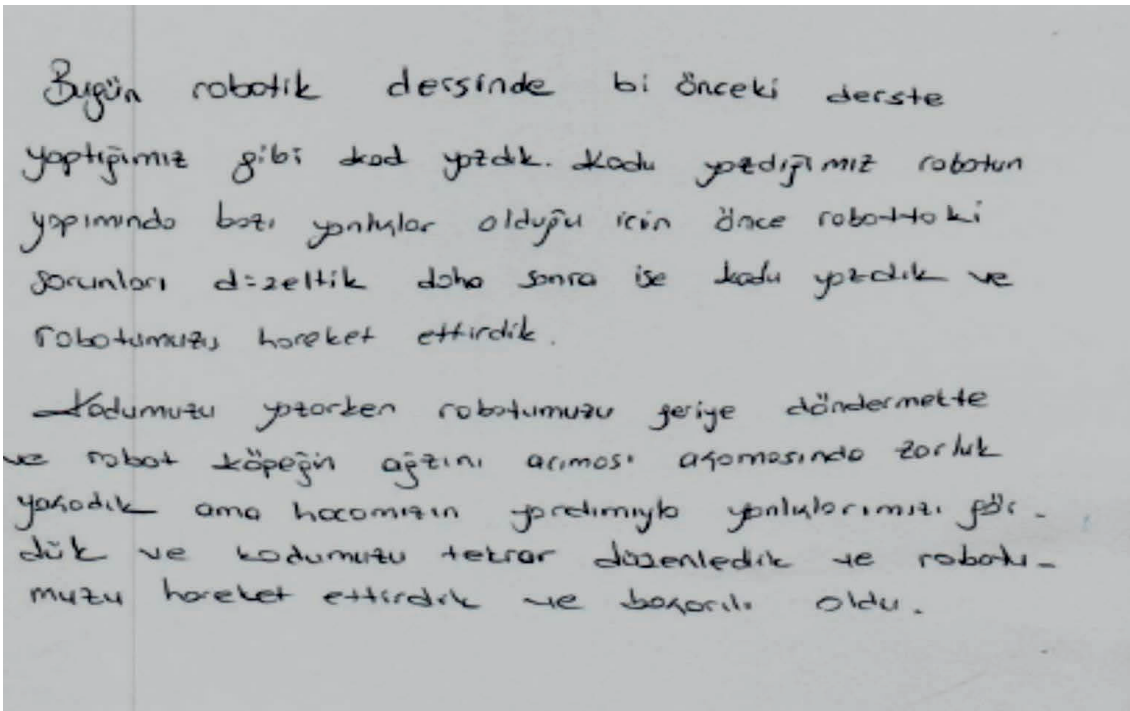 Bugün robotik dersinde bi önceki derste
yaptığımız gibi kod yazdık. Kodu yazdığımız robotun
yapımında bazı yanlışlar olduğu için önce robottaki
sorunları düzeltik daha sonra ise kodu yazdık ve
robotumuzu hareket ettirdik.
Kodumuzu yazarken robotumuzu geriye döndermekte
ve robot köpeğin ağzını açıması aşamasında zorluk
yaşadık ama hocamızın yardımıyla yanlışlarımızı gör-
dük ve kodumuzu tekrar düzenledik ve robotu-
muzu hareket ettirdik ve başarılı oldu.